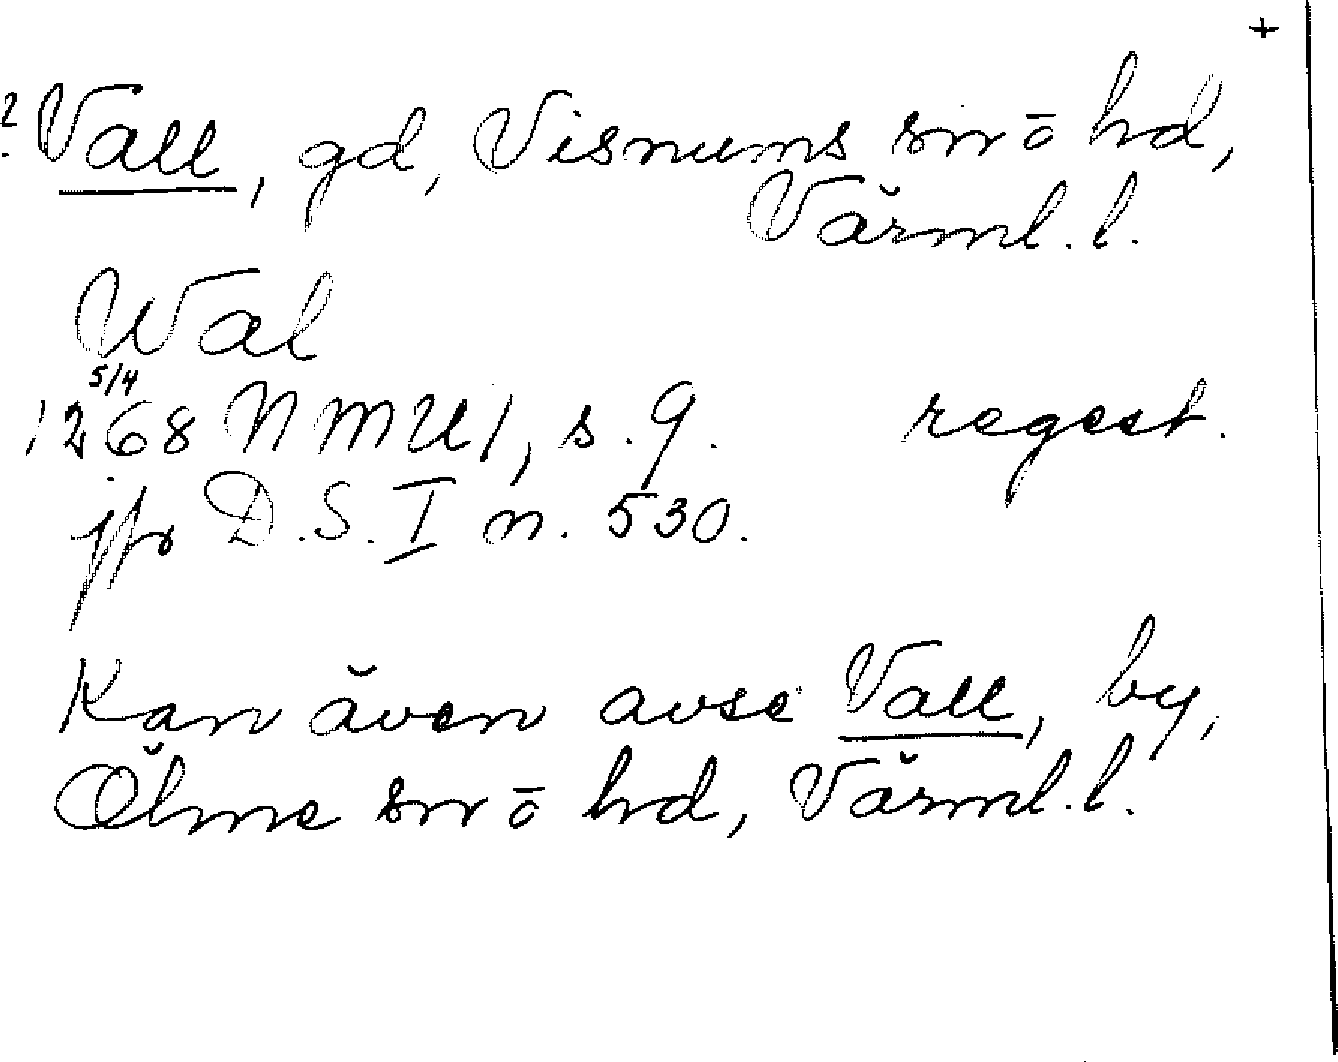 +
? Vall, gd, Visnums sn o hd,
Värml. l.
Wal
5/4
1268 NMU 1, s. 9. regest.
jfr D.S. I n. 530.
Kan även avse Vall, by,
Ölme sn o hd, Värml. l.